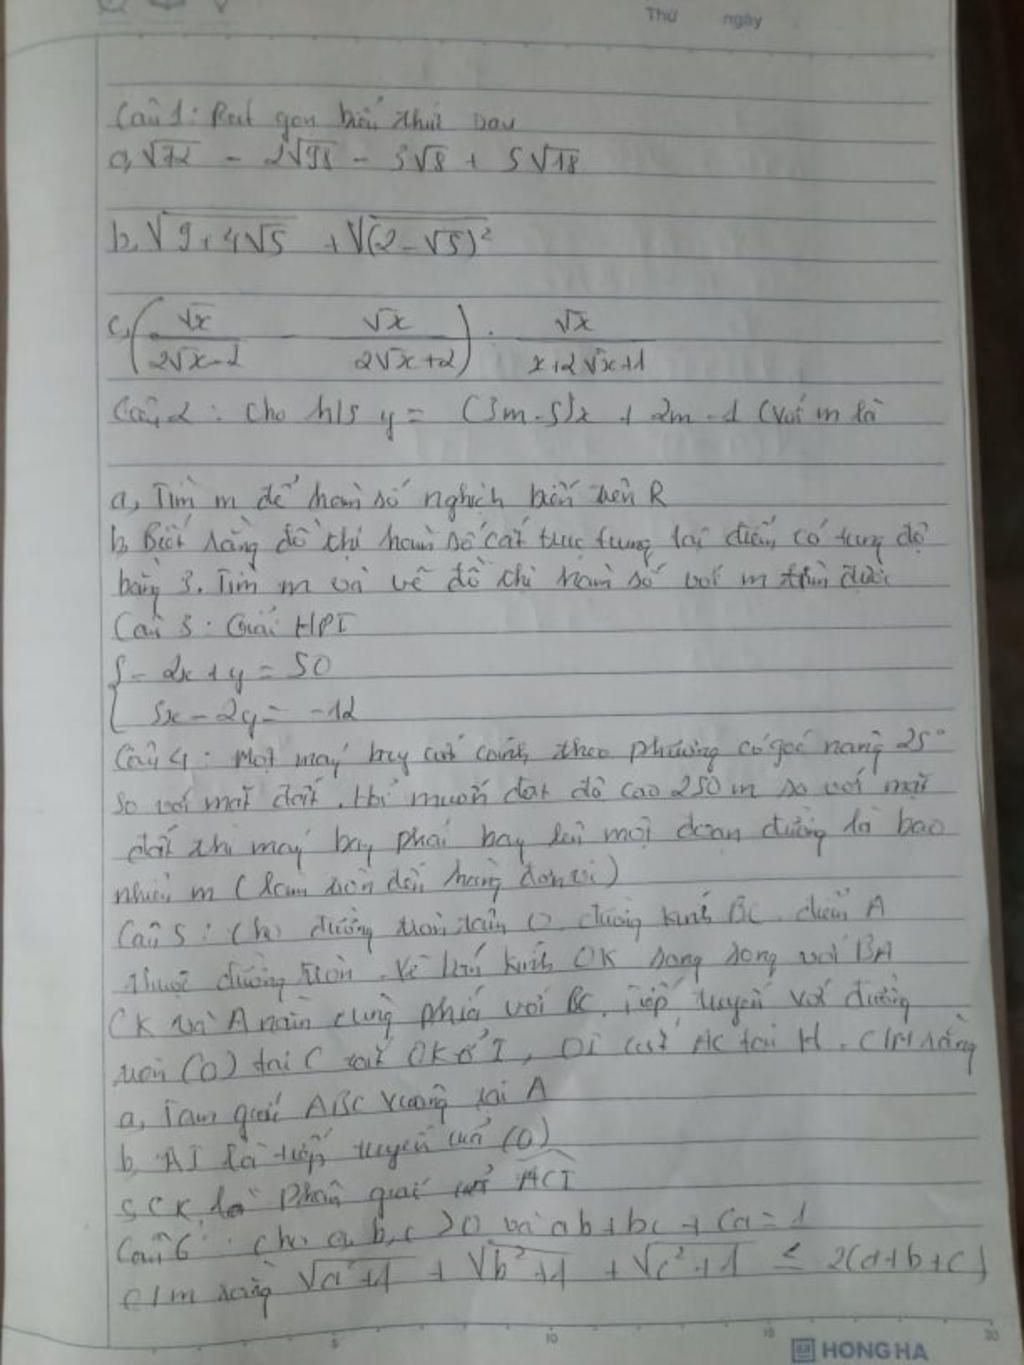 Thứ ngày
Câu 1: Rút gọn biểu thức sau
a, √72 - 2√98 - 3√8 + 5√18
b, √9+4√5 + √(2-√5)²
c, (√x / 2√x-2 - √x / 2√x+2) : √x / x+2√x+1
Câu 2: Cho h/s y = (3m-5)x + 2m-1 (Với m là
a, Tìm m để hàm số nghịch biến trên R
b, Biết rằng đồ thị hàm số cắt trục tung tại điểm có tung độ
bằng 3. Tìm m và vẽ đồ thị hàm số với m tìm được
Câu 3: Giải HPT
{ - 2x + y = 50
5x - 2y = -12
Câu 4: Một máy bay cất cánh theo phương có góc nâng 25°
so với mặt đất. Hỏi muốn đạt độ cao 250 m so với mặt
đất thì máy bay phải bay lên một đoạn đường là bao
nhiêu m (làm tròn đến hàng đơn vị)
Câu 5: Cho đường tròn tâm O, đường kính BC, điểm A
thuộc đường tròn. Vẽ bán kính OK song song với BA
(K và A nằm cùng phía với BC. Tiếp tuyến với đường
tròn (O) tại C cắt OK ở I, OI cắt AC tại H. C/M rằng
a, Tam giác ABC vuông tại A
b, AI là tiếp tuyến của (O)
c, CK là phân giác của ACI
Câu 6: cho a, b, c >0 và ab+bc+ca=1
c/m rằng √a²+1 + √b²+1 + √c²+1 ≤ 2(a+b+c)
5 10 15 20
HONG HA